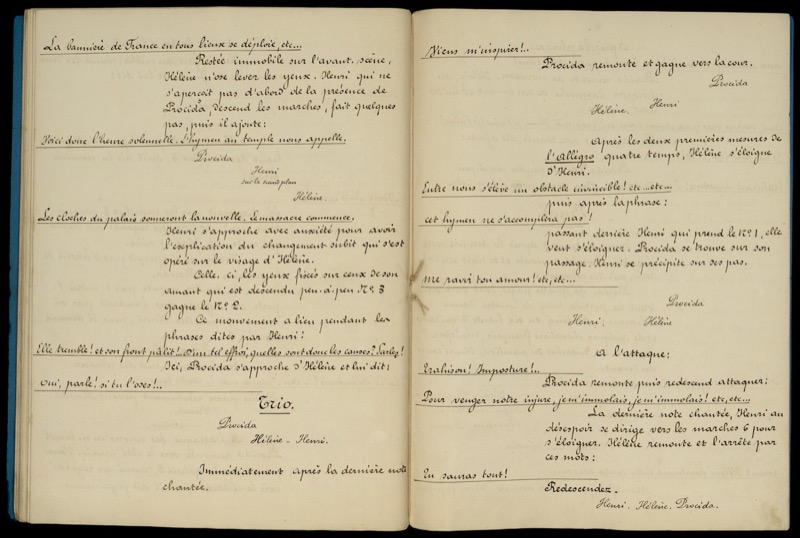 La bannière de France en tous lieux se déploie, etc...
Restée immobile sur l'avant-scène,
Hélène n'ose lever les yeux. Henri qui ne
s'aperçoit pas d'abord de la présence de
Procida, descend les marches, fait quelques
pas, puis il ajoute:
Voici donc l'heure solennelle. L'hymen au temple nous appelle.
Procida
Henri
sur le second plan
Hélène.
Les cloches du palais sonneront la nouvelle, le massacre commence.
Henri s'approche avec anxiété pour avoir
l'explication du changement subit qui s'est
opéré sur le visage d'Hélène.
Celle-ci, les yeux fixés sur ceux de son
amant qui est descendu peu-à-peu No. 3
gagne le No. 2.
Ce mouvement a lieu pendant les
phrases dites par Henri:
Elle tremble! et son front pâlit!... D'un tel effroi, quelles sont donc les causes? Parlez!
Ici, Procida s'approche d'Hélène et lui dit:
Oui, parle! si tu l'oses!..
Trio.
Procida
Hélène - Henri.
Immédiatement après la dernière note
chantée.
Viens m'inspirer!..
Procida remonte et gagne vers la cour.
Procida
Hélène. Henri
Après les deux premières mesures de
l'Allégro quatre temps, Hélène s'éloigne
d'Henri.
Entre nous s'élève un obstacle invincible! etc...etc...
puis après la phrase:
cet hymen ne s'accomplira pas!
passant derrière Henri qui prend le No. 1, elle
veut s'éloigner. Procida se trouve sur son
passage. Henri se précipite sur ses pas.
me ravir ton amour! etc, etc...
Procida
Henri. Hélène
A l'attaque:
Trahison! Imposture!..
Procida remonte puis redescend attaquer:
Pour venger notre injure, je m'immolais, je m'immolais! etc, etc...
La dernière note chantée, Henri au
désespoir se dirige vers les marches 6 pour
s'éloigner. Hélène remonte et l'arrête par
ces mots:
Tu sauras tout!
Redescendez.
Henri. Hélène. Procida.